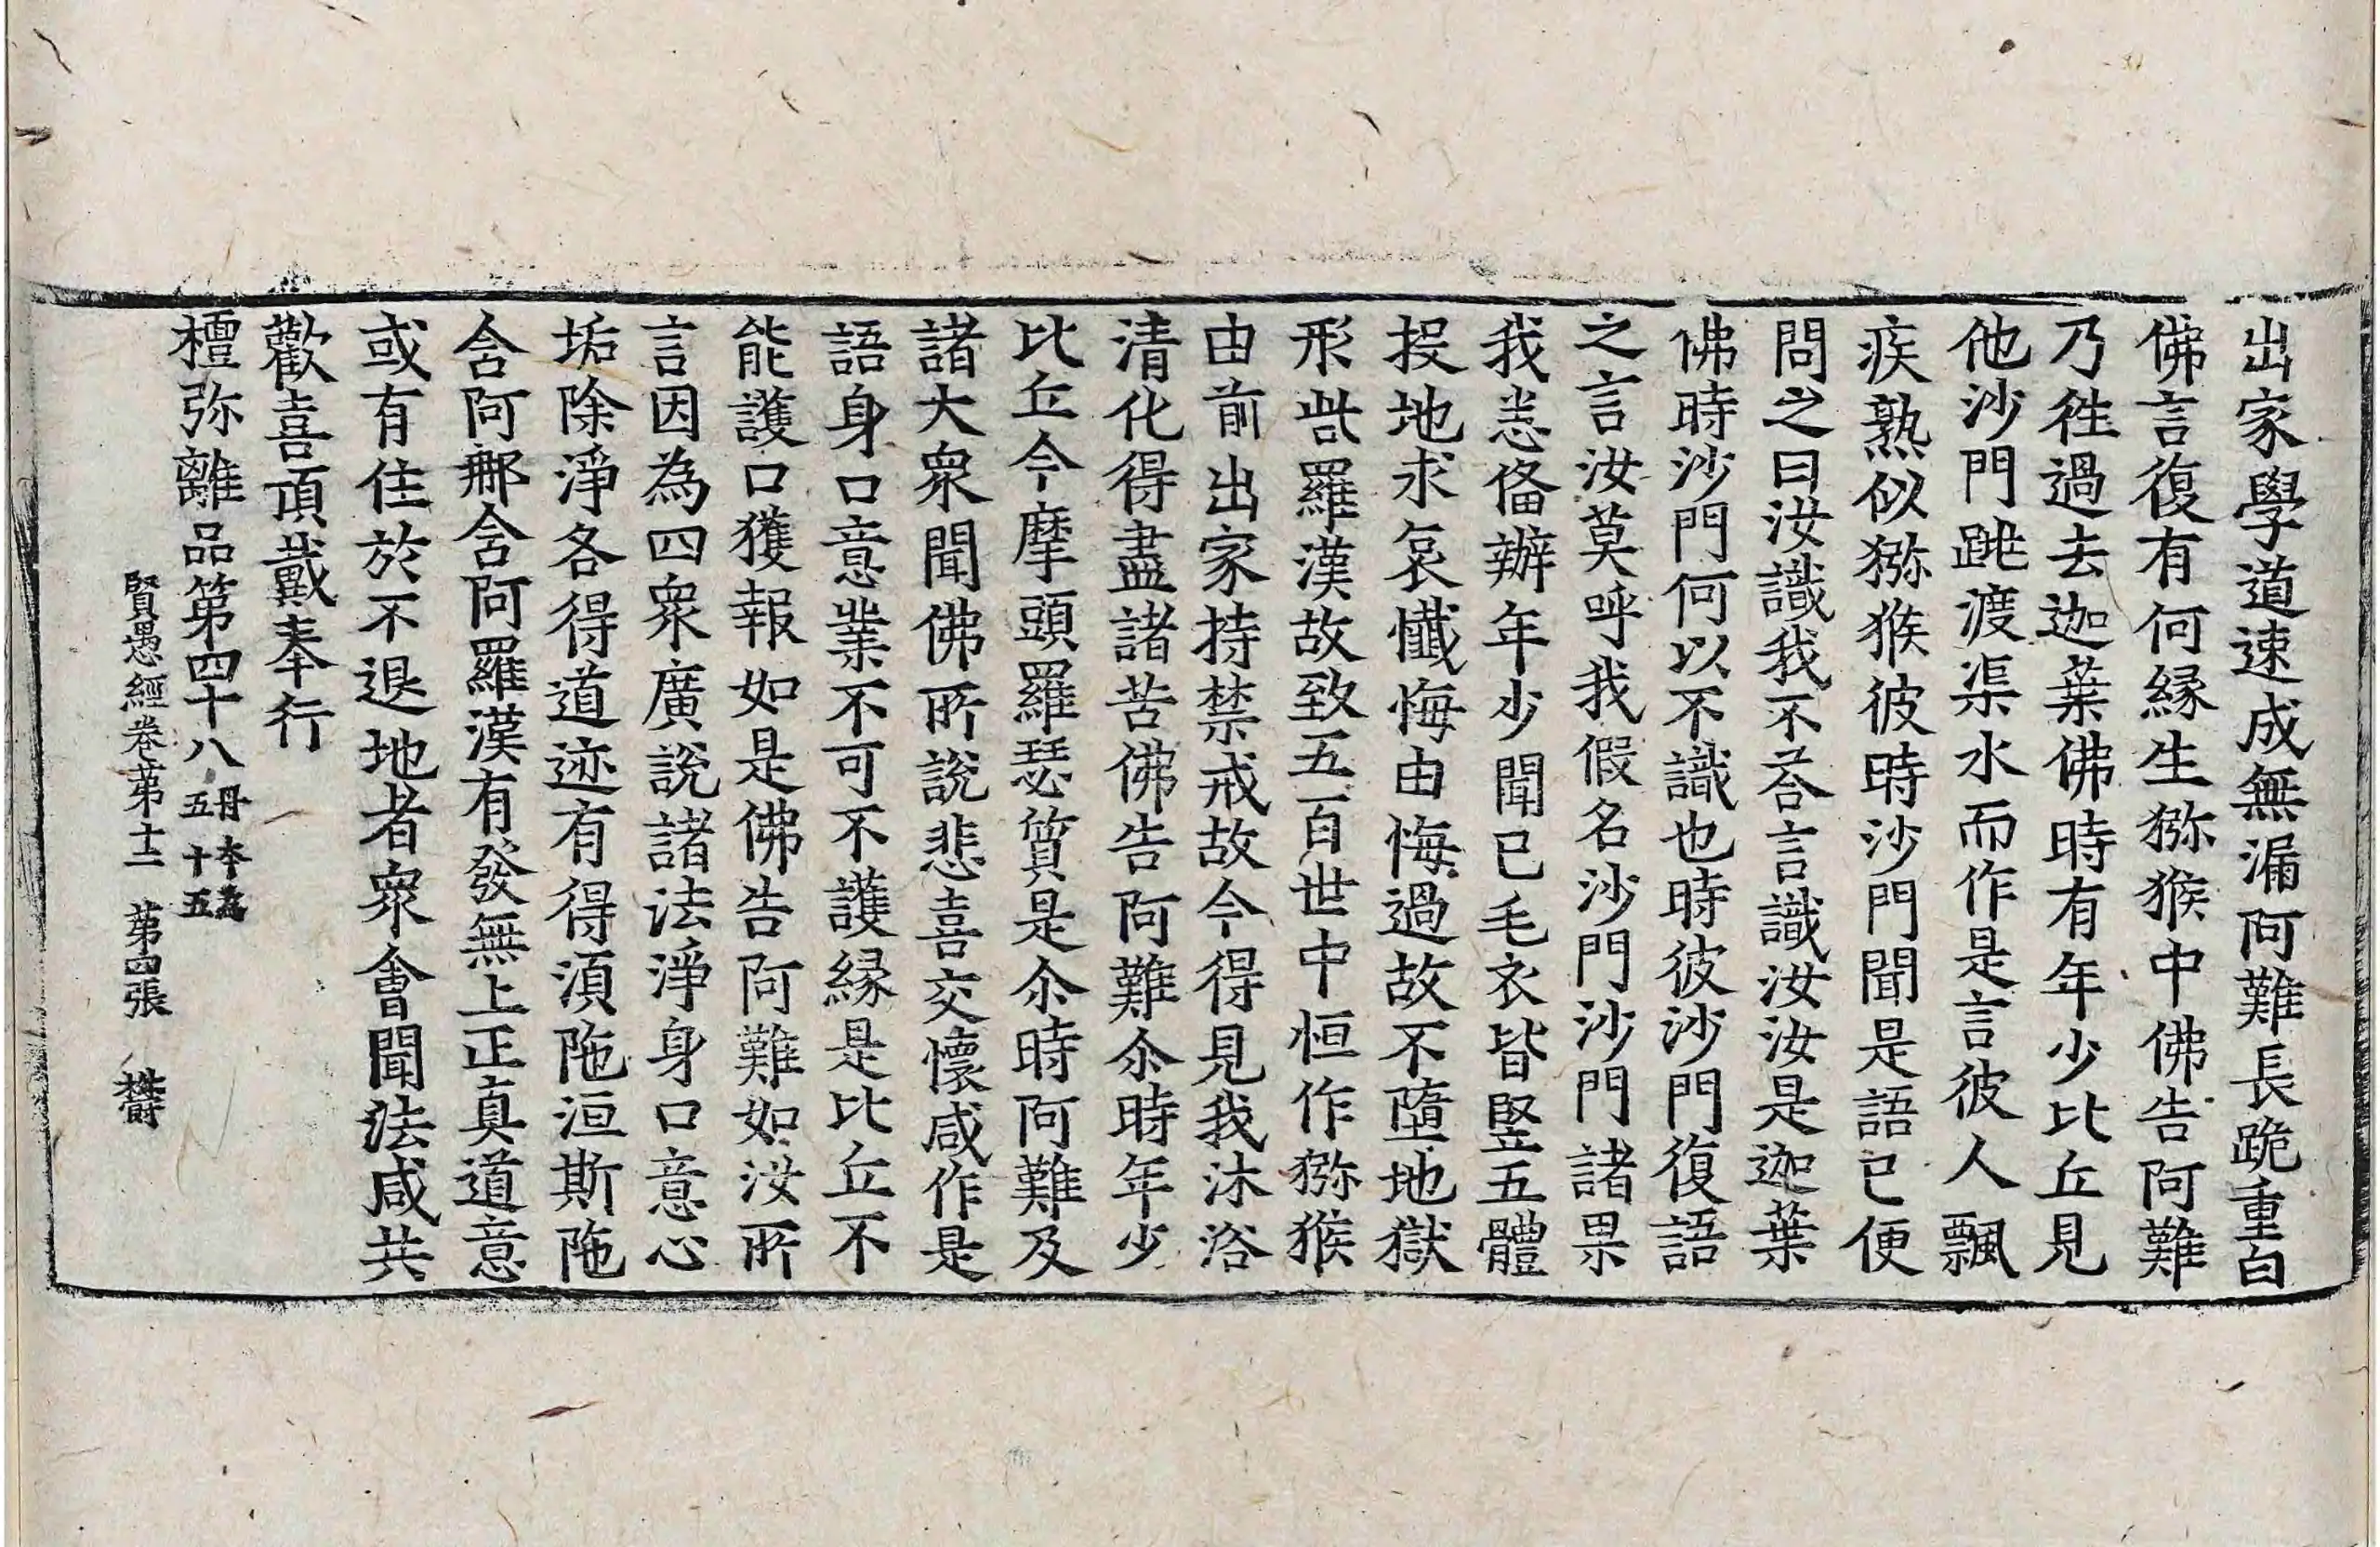 出家學道速成無漏阿難長跪重白
佛言復有何緣生猕猴中佛告阿難
乃徃過去迦葉佛時有年少比丘見
他沙門跳渡渠水而作是言彼人飄
疾熟似猕猴彼時沙門聞是語已便
問之曰汝識我不荅言識汝汝是迦葉
佛時沙門何以不識也時彼沙門復語
之言汝莫呼我假名沙門沙門諸果
我悉俻辦年少聞已毛衣皆竪五體
投地求哀懺悔由悔過故不墮地獄
形呰羅漢故致五百世中恒作猕猴
由前出家持禁戒故今得見我沐浴
清化得盡諸苦佛告阿難尒時年少
比丘今摩頭羅瑟質是尒時阿難及
諸大衆聞佛所說悲喜交懷咸作是
語身口意業不可不護緣是比丘不
能護口獲報如是佛告阿難如汝所
言因為四衆廣說諸法淨身口意心
垢除淨各得道迹有得湏陁洹斯陁
含阿那含阿羅漢有發無上正真道意
或有住於不退地者衆會聞法咸共
歡喜頂戴奉行
檀弥離品第四十八 丹本為五十五
賢愚經卷第十二 第四張 欝